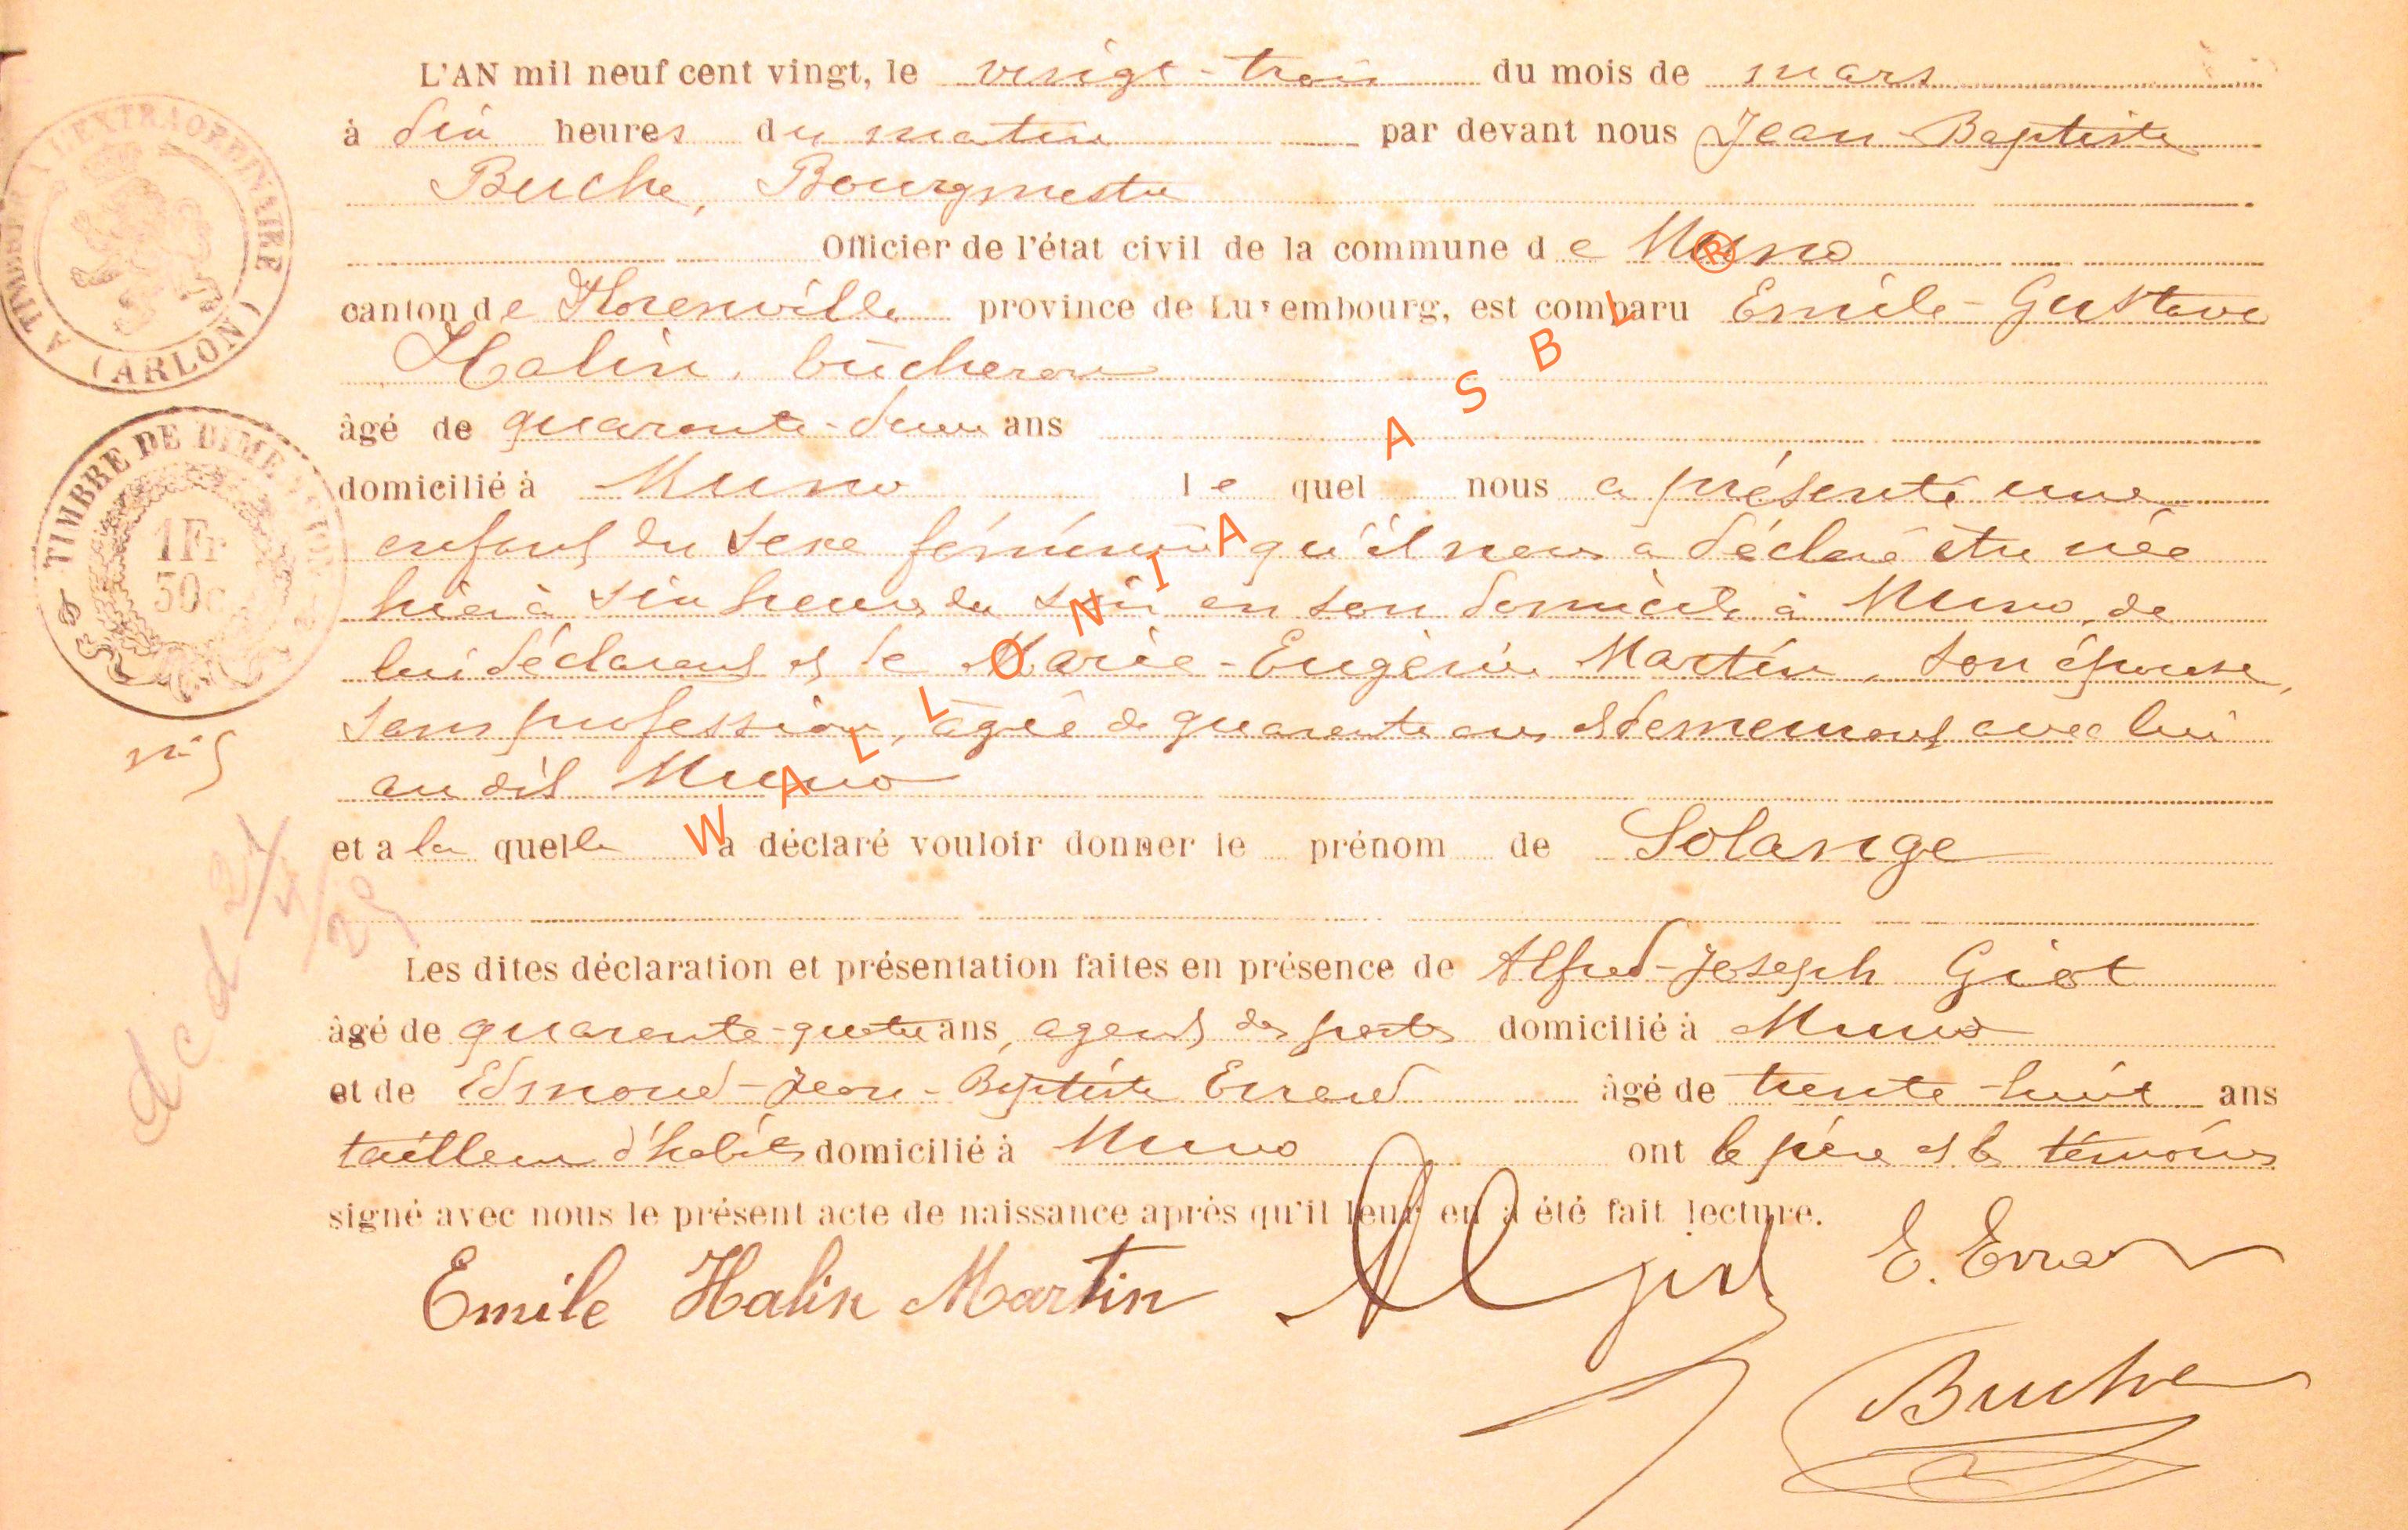 L'AN mil neuf cent vingt, le vingt-trois du mois de mars
à dix heures du matin par devant nous Jean-Baptiste
Buche, Bourgmestre
Officier de l'état civil de la commune de Muno
canton de Florenville province de Luxembourg, est comparu Emile-Gustave
Halin, bûcheron
âgé de quarante-deux ans
domicilié à Muno lequel nous a présenté une
enfant du sexe féminin qu'il nous a déclaré être née
hier à six heures du soir en son domicile à Muno, de
lui déclarant et de Marie-Eugénie Martin, son épouse,
sans profession, âgée de quarante ans et demeurant avec lui
au dit Muno
et a la quelle a déclaré vouloir donner le prénom de Solange
Les dites déclaration et présentation faites en présence de Alfred-Joseph Giot
âgé de quarante-quatre ans, agent des postes domicilié à Muno
et de Edmond-Jean-Baptiste Errard âgé de trente-huit ans
tailleur d'habits domicilié à Muno ont le père et les témoins
signé avec nous le présent acte de naissance après qu'il leur en a été fait lecture.
Emile Halin Martin E. Errard
Buche
A TIMBRER A L'EXTRAORDINAIRE (ARLON)
TIMBRE DE DIMENSION
1Fr
50c
n° 5
dcd 27/4/25
WALLONIA ASBL ®